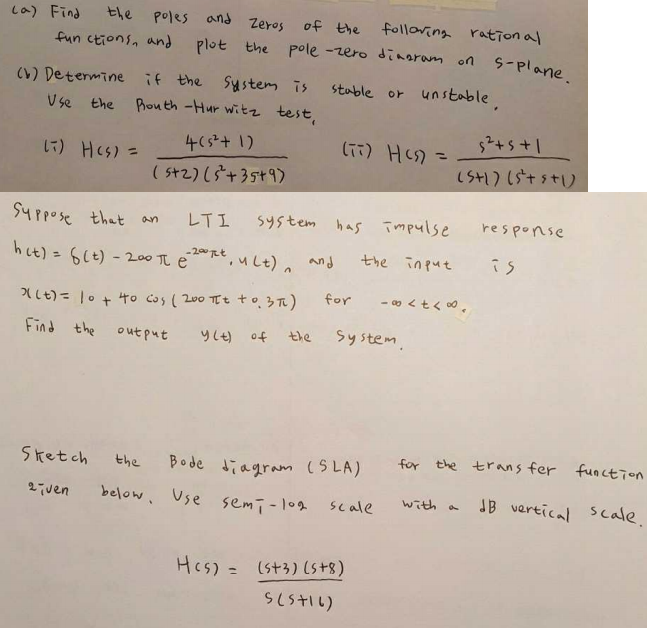 (a) Find the poles and zeros of the following rational
functions, and plot the pole-zero diagram on s-plane.
(b) Determine if the system is stable or unstable.
Use the Routh-Hurwitz test.
(i) H(s) = 4(s²+1) / (s+2)(s²+3s+9) (ii) H(s) = s²+s+1 / (s+1)(s²+s+1)
Suppose that an LTI system has impulse response
h(t) = δ(t) - 200π e^{-200πt}, u(t), and the input is
x(t) = 10 + 40 cos(200πt + 0.3π) for -∞ < t < ∞.
Find the output y(t) of the system.
Sketch the Bode diagram (SLA) for the transfer function
given below. Use semi-log scale with a dB vertical scale.
H(s) = (s+3)(s+8) / s(s+16)